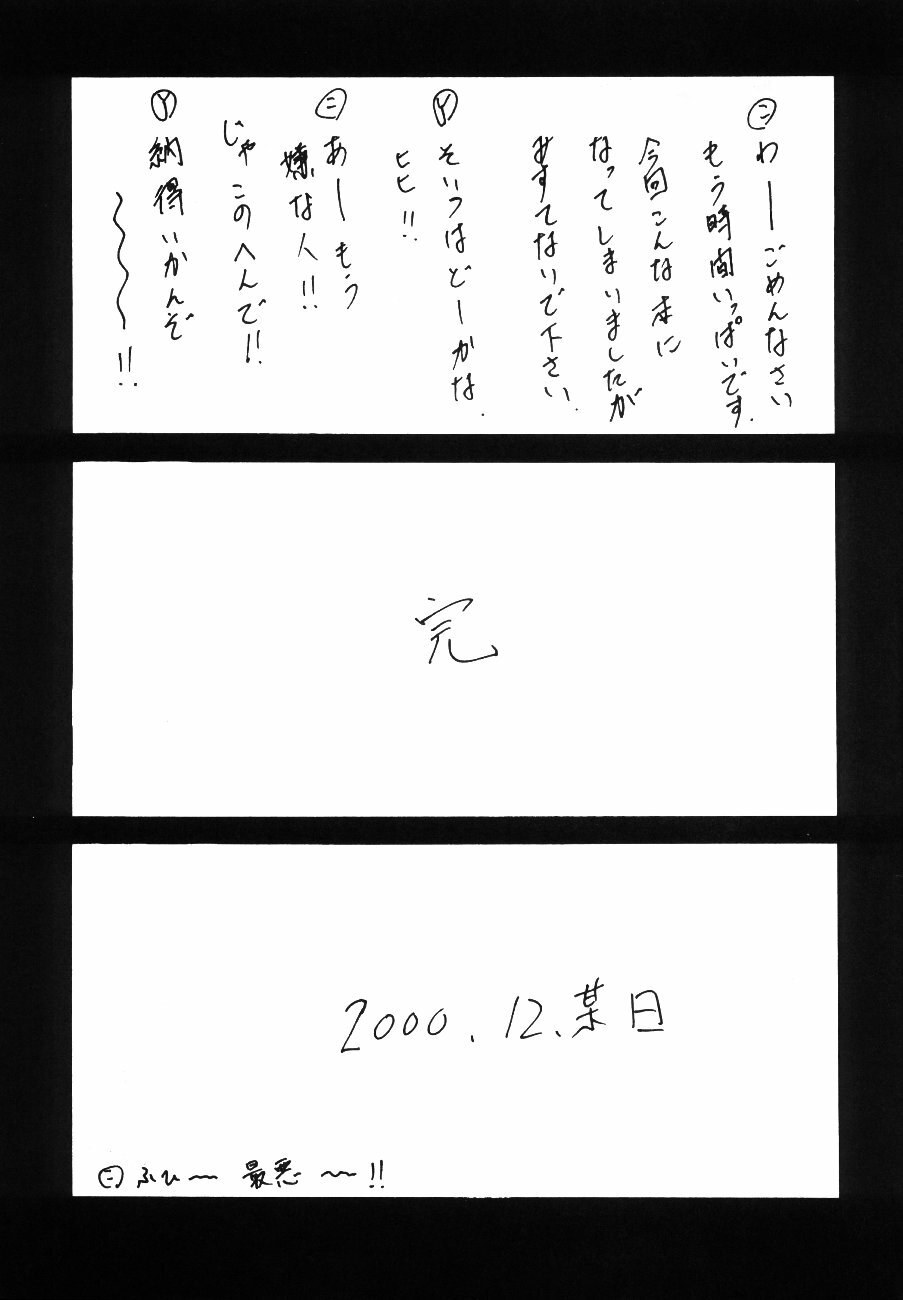 ㊁わーごめんなさい
もう時間いっぱいです.
今回こんな本に
なってしまいましたが
みすてないで下さい.
Ⓨそいつはどーかな.
ヒヒ!!
㊁あーもう
嫌な人!!
じゃこのへんで!!
Ⓨ納得いかんぞ
〜〜〜〜!!
完
2000.12.某日
㊁ふひ〜最悪〜!!